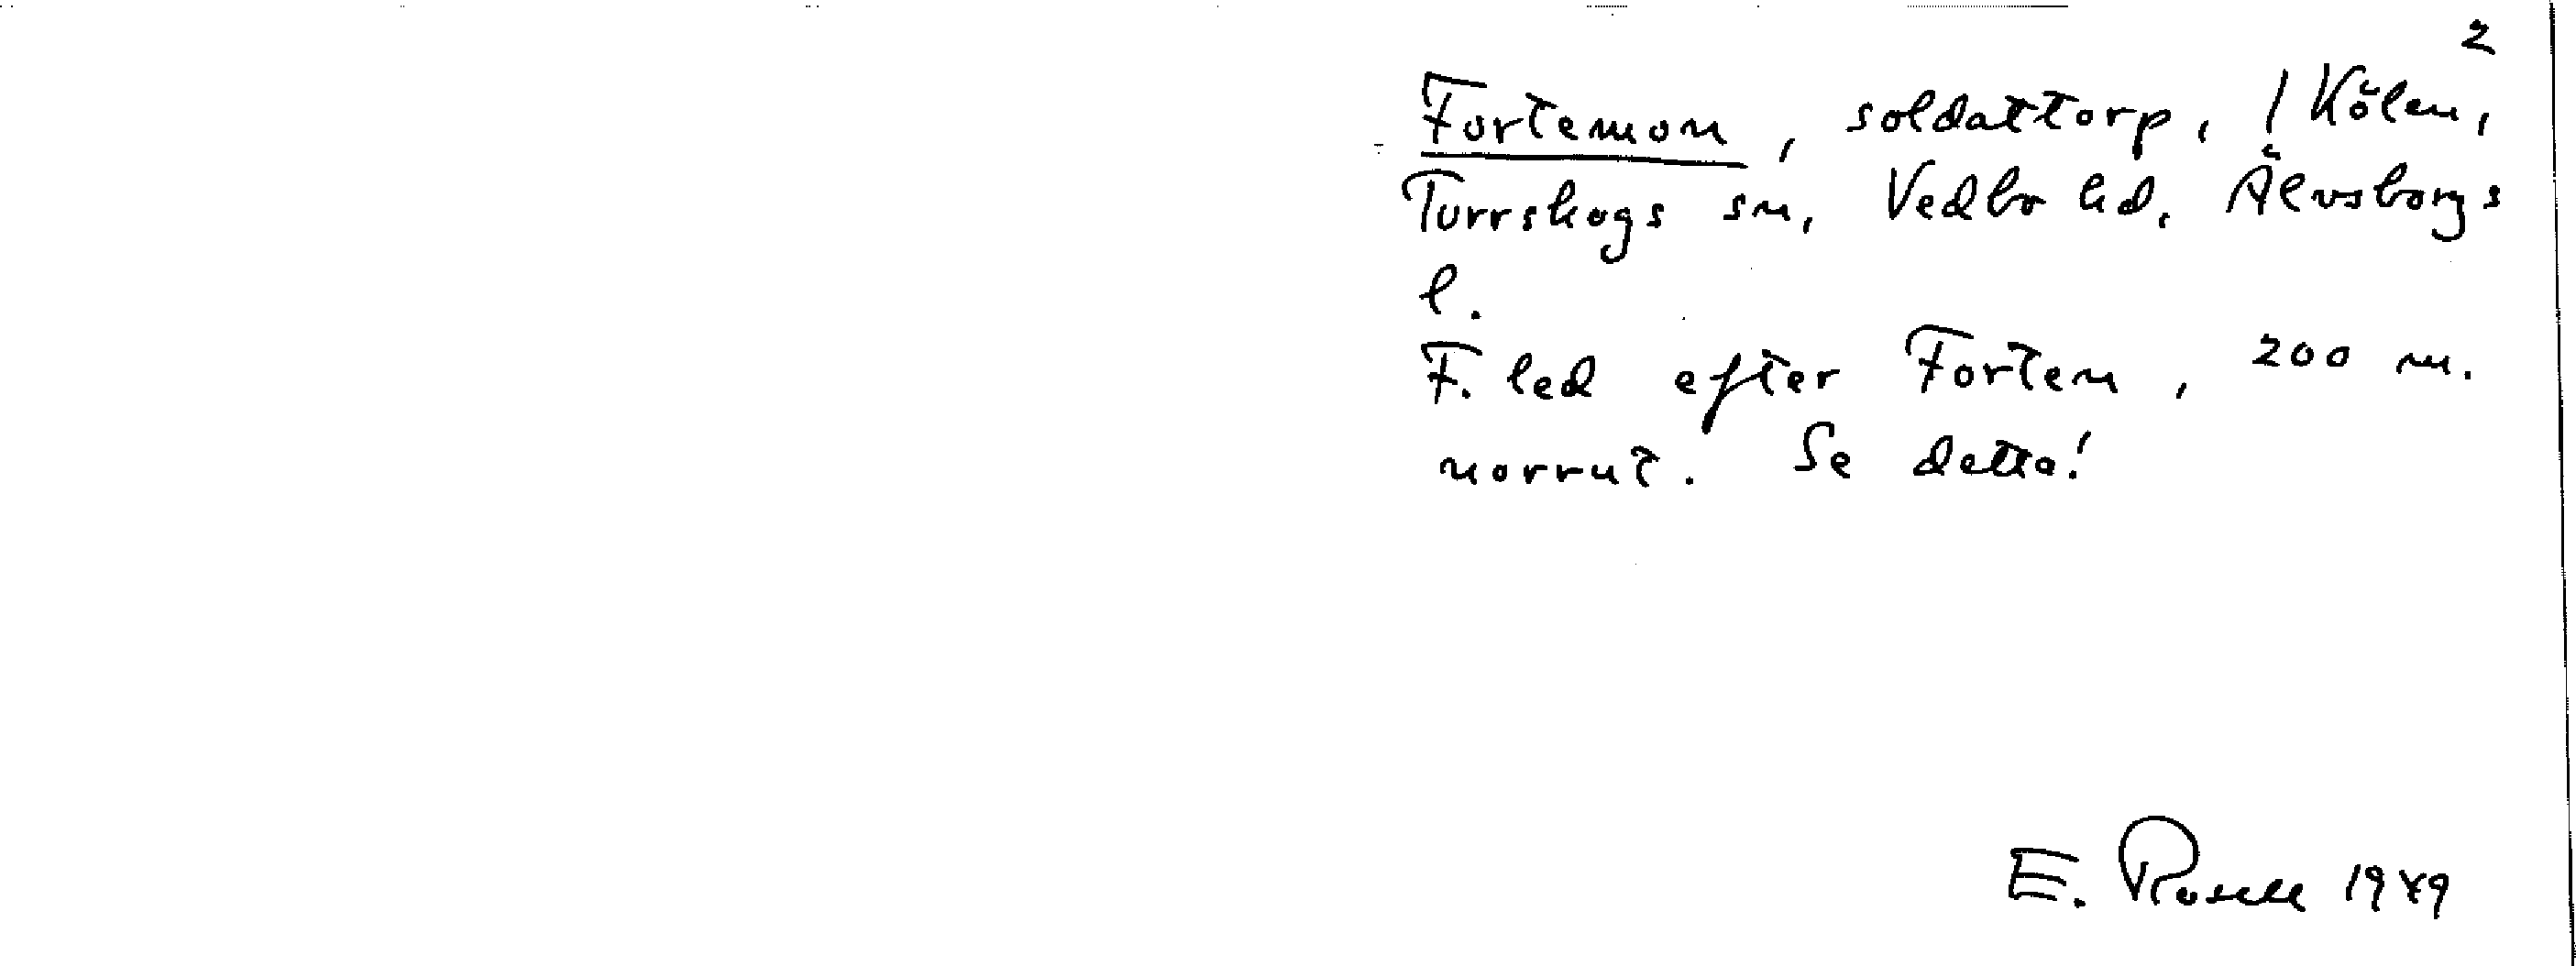 2
Fortemon, soldattorp, / Kölen,
Torrskogs sn, Vedbo hd, Älvsborgs
l.
F. led efter Forten, 200 m.
norrut. Se detta!
E. Rosell 1949